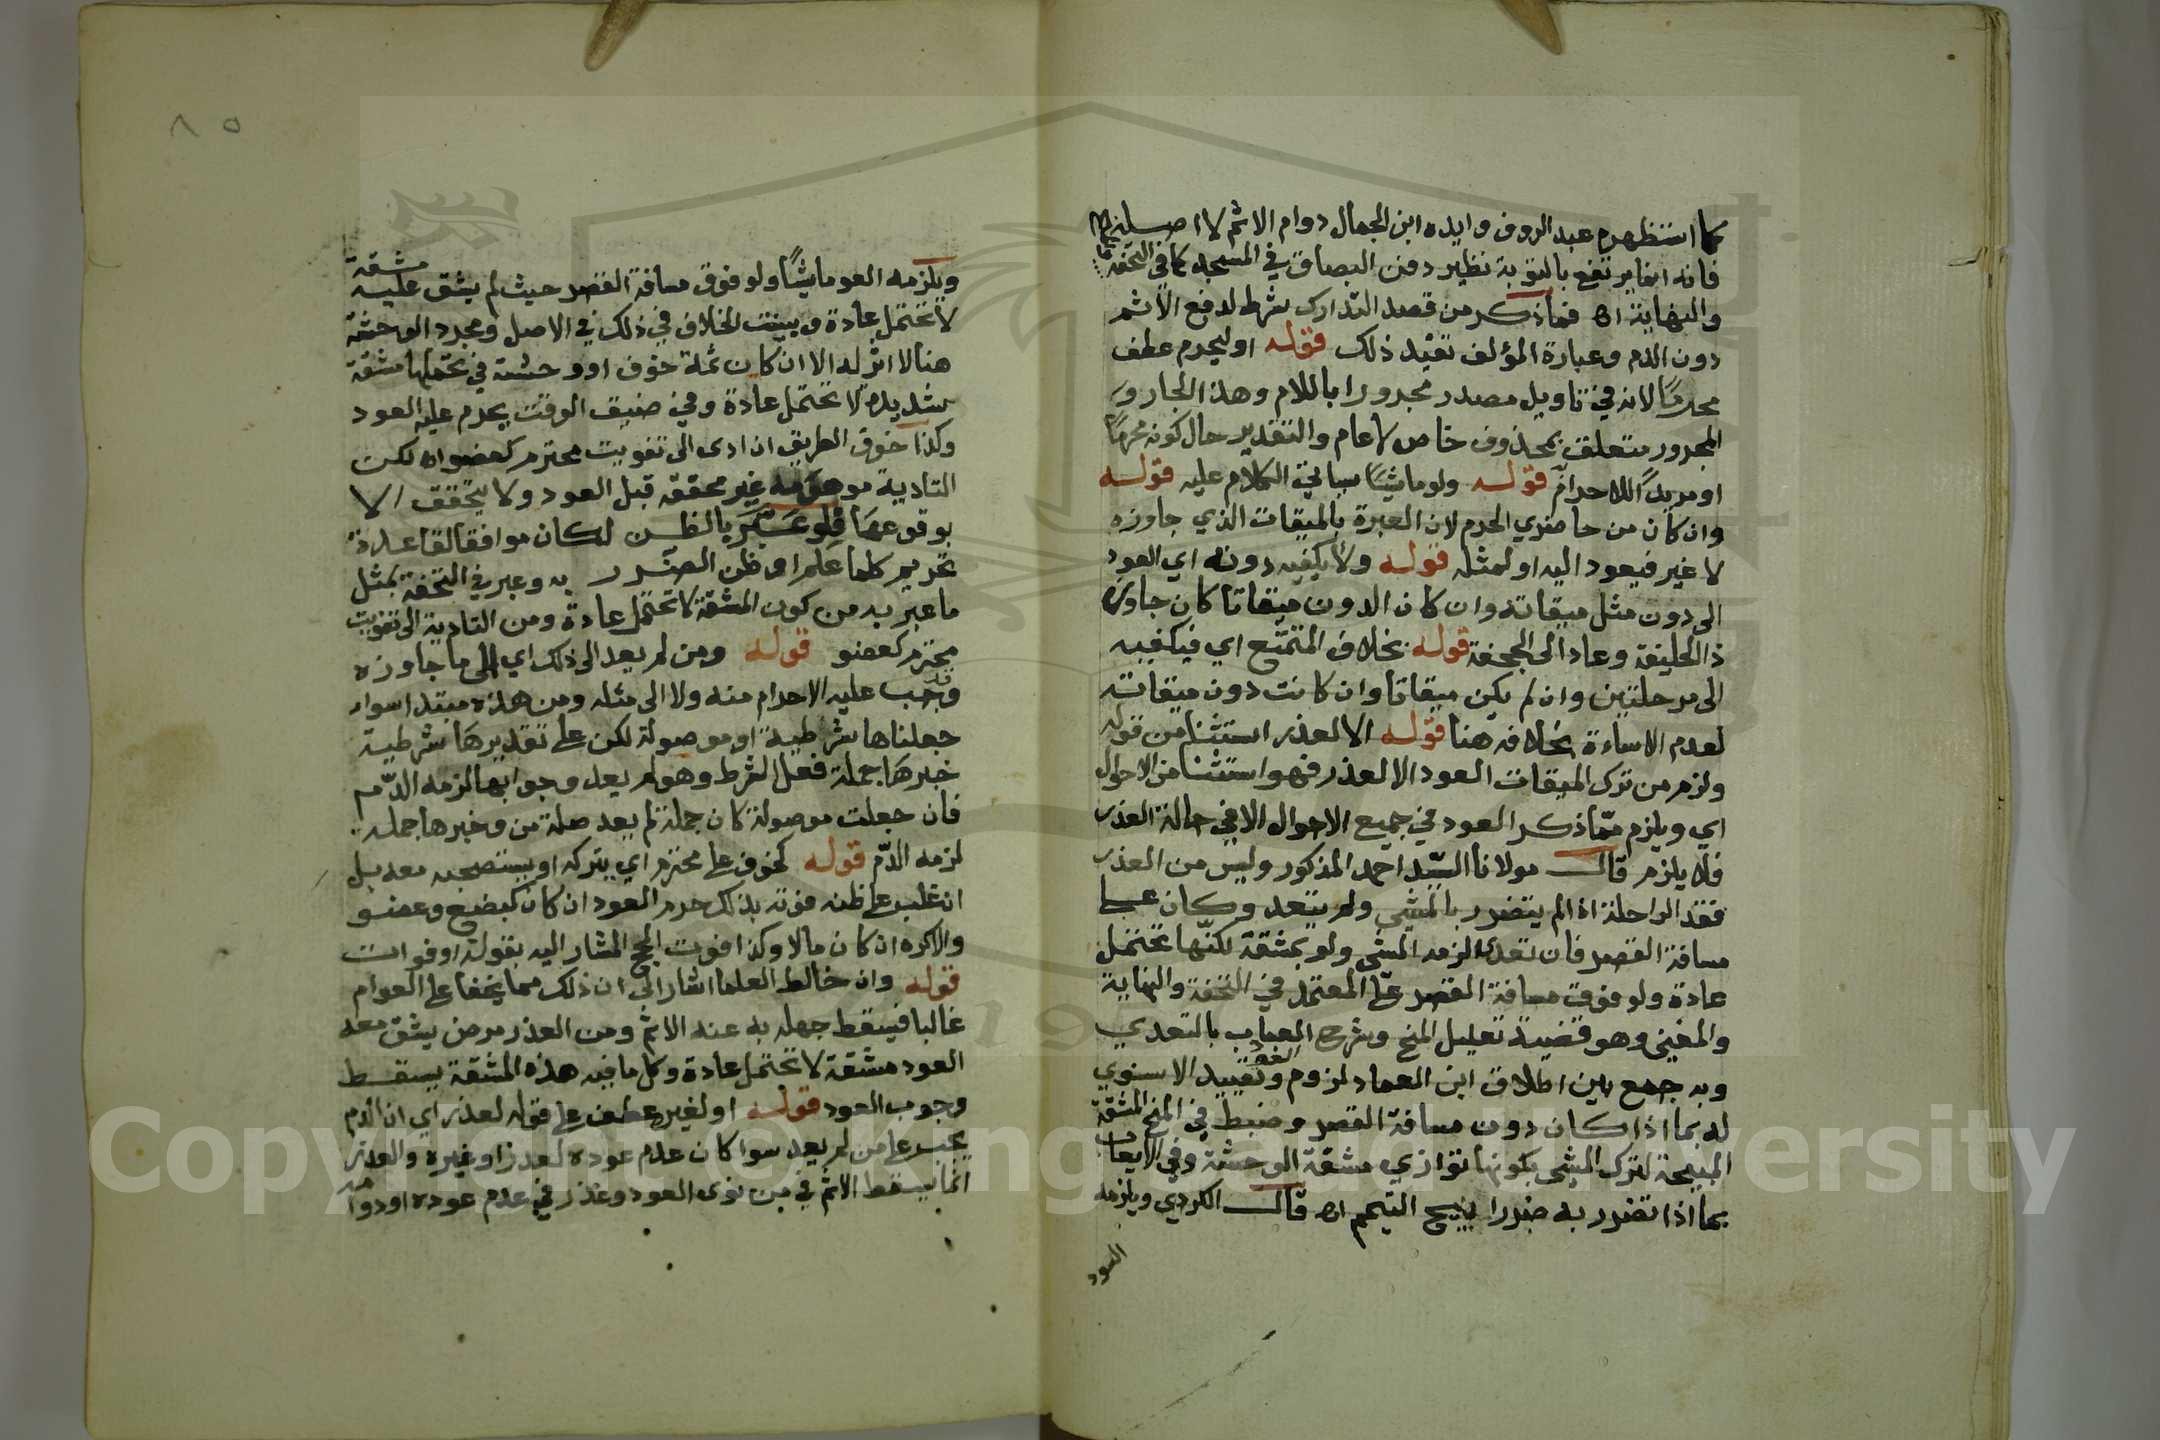 كما استظهره عبد الروف وايده ابن الجمال دوام الاثم لا اصله
فانه انما يرتفع بالتوبة نظير دفن البصاق في المسجد كما في التحفة
والنهاية اه فما ذكر من قصد التدارك شرط لدفع الاثم
دون الدم وعبارة المؤلف تفيد ذلك قوله او ليحرم عطف
محرمًا لانه في تاويل مصدر مجرورا باللام وهذا الجار و
المجرور متعلق بمحذوف خاص لا عام والتقدير حال كونه محرمًا
او مريدًا للاحرام قوله ولو ماشيًا سياتي الكلام عليه قوله
وان كان من حاضري الحرم لان العبرة بالميقات الذي جاوزه
لا غير فيعود اليه او لمثله قوله ولا يكفيه دونه اي العود
الى دون مثل ميقاته وان كان الدون ميقاتا كان جاوزه
ذا الحليفة وعاد الى الجحفة قوله بخلاف المتمتع اي فيكفيه
الى مرحلتين وان لم يكن ميقاتا وان كانت دون ميقاته
لعدم الاساءة بخلافه هنا قوله الا لعذر استثنا من قوله
ولزم من ترك الميقات العود الا لعذر فهو استثنا من الاحوال
اي ويلزم مما ذكر العود في جميع الاحوال الا في حالة العذر
فلا يلزم قال مولانا السيد احمد المذكور وليس من العذر
فقد الراحلة اذا لم يتضرر بالمشي ولم يتعد وكان على
مسافة القصر فان تعدى لزمه المشي ولو بمشقة لكنها تحتمل
عادة ولو فوق مسافة القصر على المعتمد في التحفة والنهاية
والمغني وهو قضية تعليل المنح وشرح العباب بالتعدي
وبه جمع بين اطلاق ابن العماد لزوم العود وتقييد الاسنوي
له بما اذا كان دون مسافة القصر وضبط في المنح المشقة
المبيحة لترك المشي بكونها توازي مشقة الوحشة وفي الايعاب
بما اذا تضرر به ضررا يبيح التيمم اه قال الكردي ويلزمه
العود
٨٥
ويلزمه العود ماشيًا ولو فوق مسافة القصر حيث لم يشق عليه مشقة
لا تحتمل عادة وبينت الخلاف في ذلك في الاصل ومجرد الوحشة
هنا لا اثر له الا ان كان ثمة خوف او وحشة في تحملها مشقة
شديدة لا تحتمل عادة وفي ضيق الوقت يحرم عليه العود
وكذا خوف الطريق ان ادى الى تفويت محترم كعضو اه لكن
التادية موهومة غير محققة قبل العود ولا يتحقق الا
بوقوعها فلو عبر بالظن لكان موافقا لقاعدة
تحريم كلما علم او ظن الضرر به وعبر في التحفة بمثل
ما عبر به من كون المشقة لا تحتمل عادة ومن التادية الى تفويت
محترم كعضو قوله ومن لم يعد الى ذلك اي الى ما جاوزه
وقد وجب عليه الاحرام منه ولا الى مثله ومن هذه مبتدا سوا
جعلناها شرطية او موصولة لكن على تقديرها شرطية
خبرها جملة فعل الشرط وهو لم يعد وجوابها لزمه الدم
فان جعلت موصولة كان جملة لم يعد صلة من وخبرها جملة
لزمه الدم قوله كخوف على محترم اي يتركه او يستصحبه معه بل
ان غلب على ظنه فوته بذلك حرم العود ان كان كبضع وعضو
والا كره ان كان مالا وكذا فوت الحج المشار اليه بقوله او فوات
قوله وان خالط العلما اشار الى ان ذلك مما يخفا على العوام
غالبا فيسقط جهله به عنه الاثم ومن العذر مرض يشق معه
العود مشقة لا تحتمل عادة وكل ما فيه هذه المشقة يسقط
وجوب العود قوله او لغيره عطف على قوله لعذر اي ان الدم
يجب على من لم يعد سوا كان عدم عوده لعذر او غيره والعذر
انما يسقط الاثم في من نوى العود وعذر في عدم عوده او دوامه